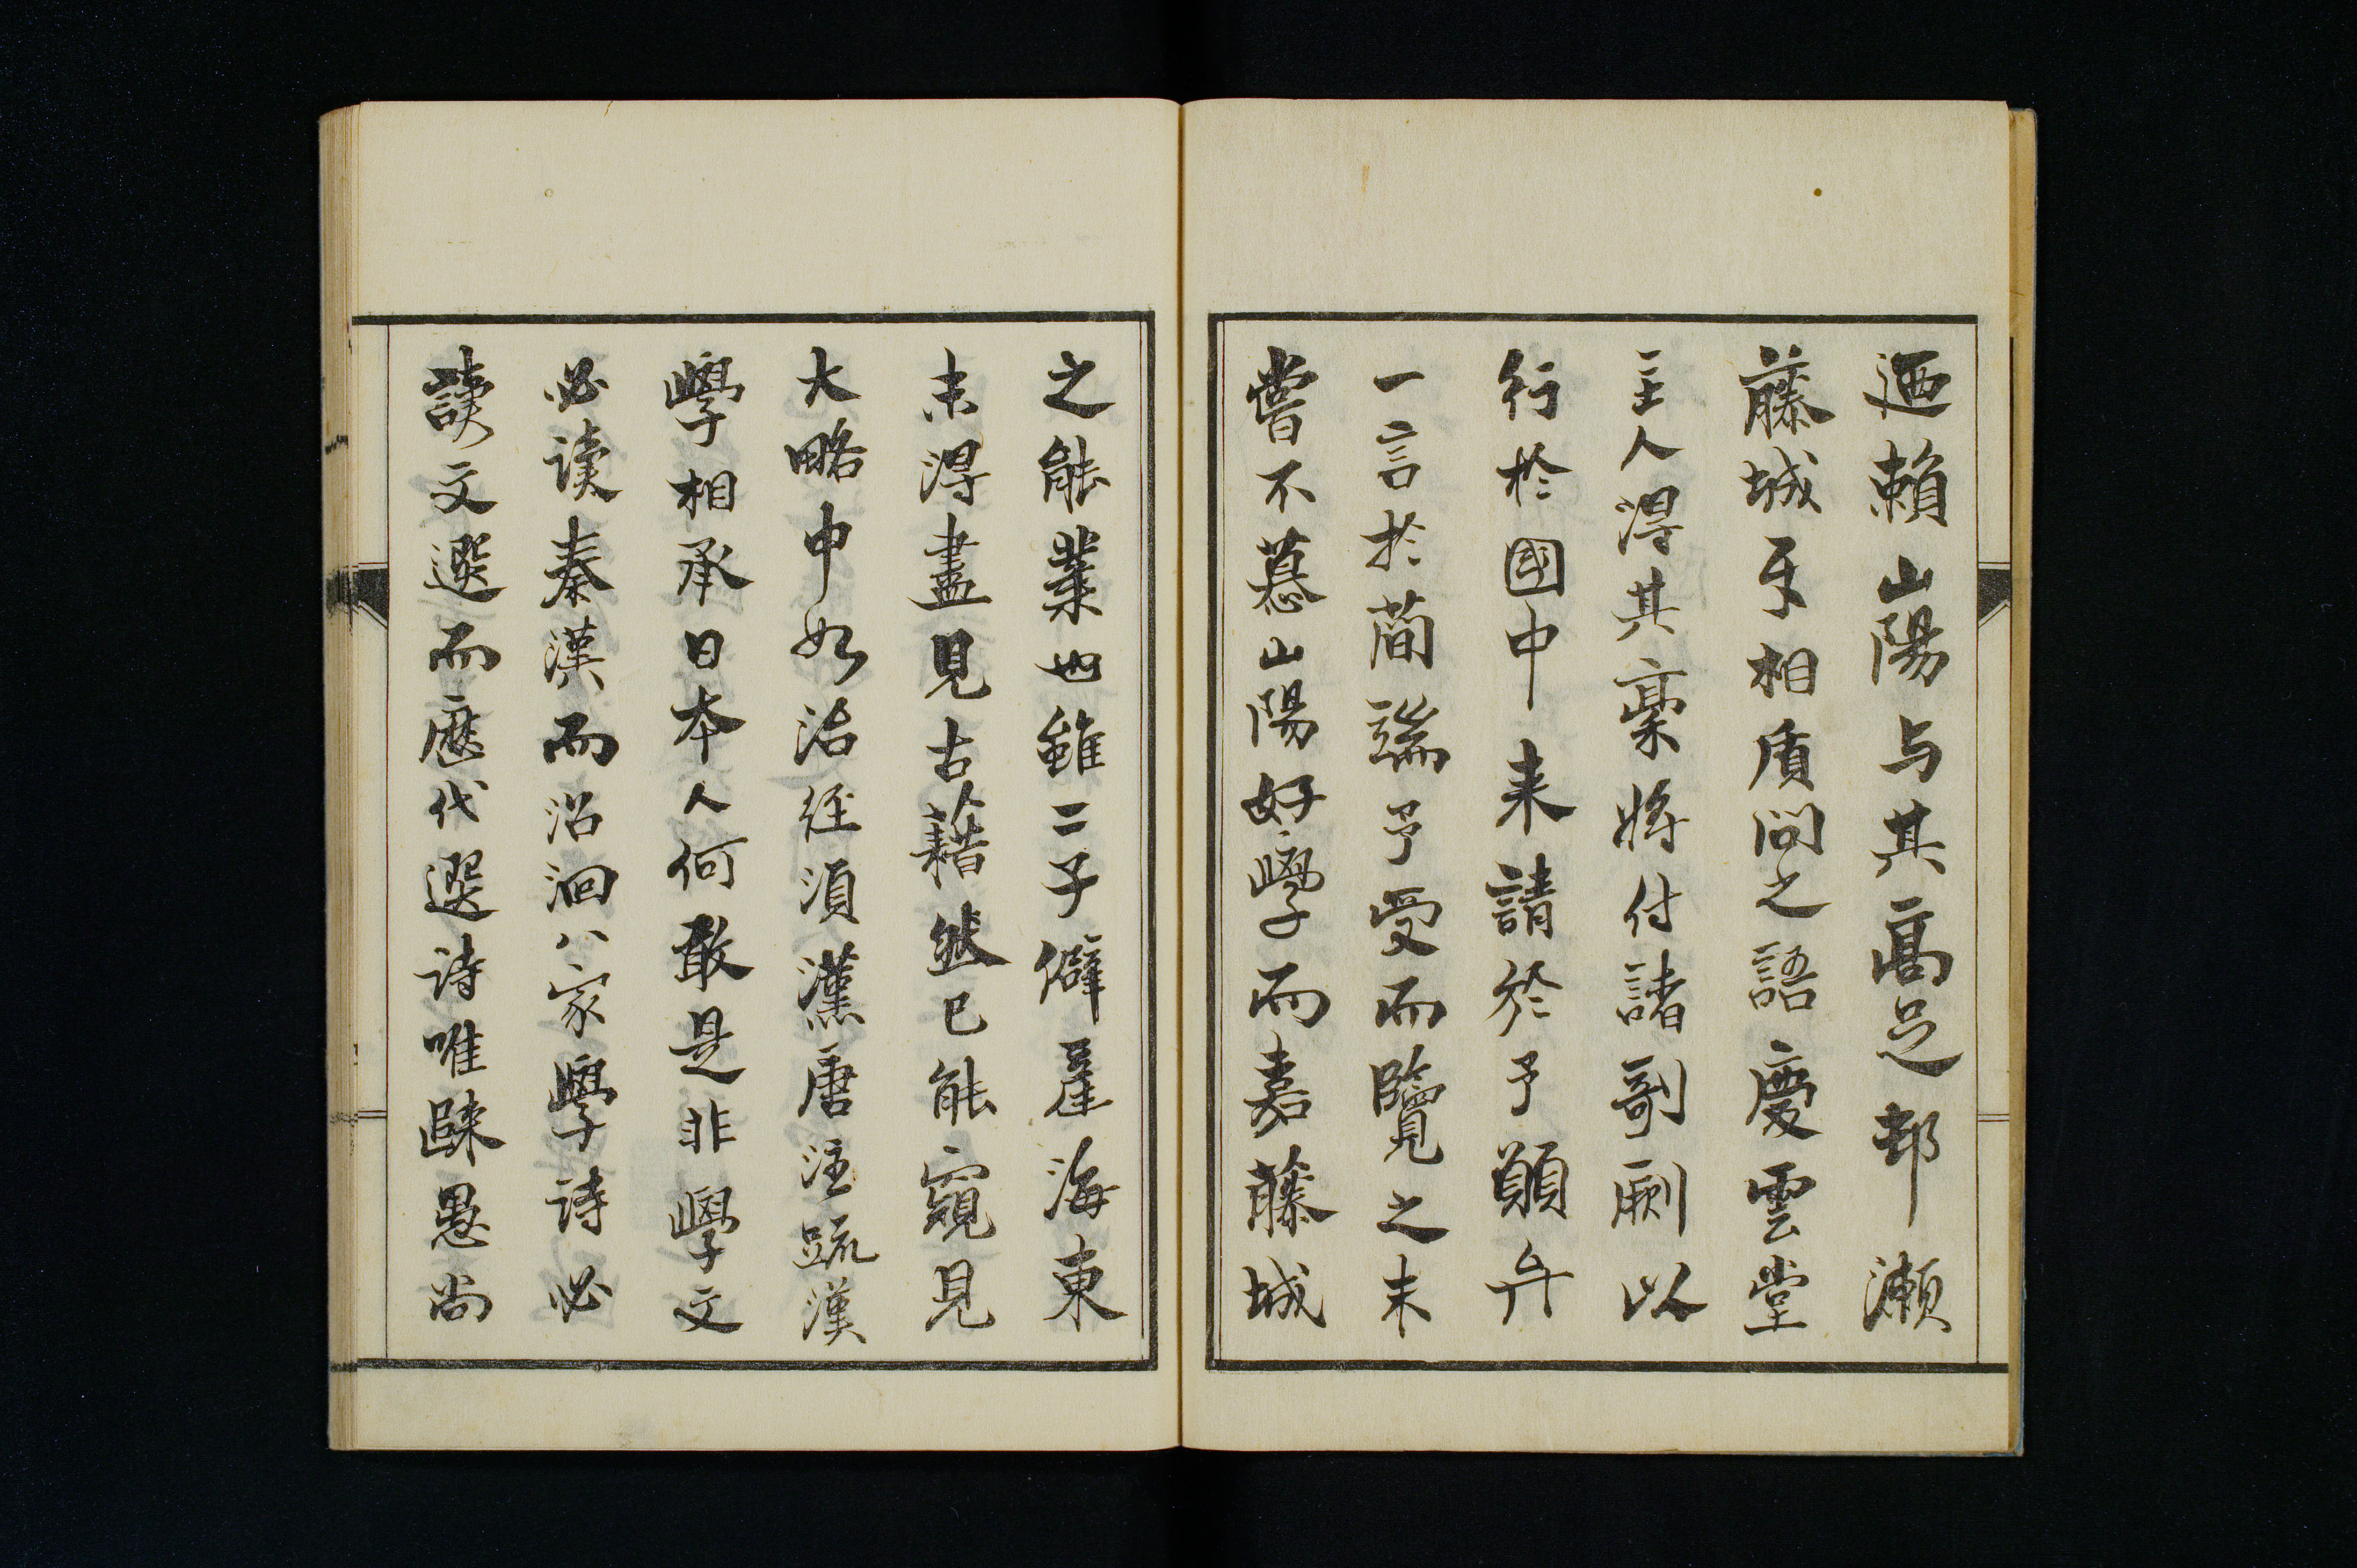 迺賴山陽与其高足邨瀬
藤城手相質問之語慶雲堂
主人淂其稾將付諸剞劂以
行於國中来請於予願弁
一言於蕳端予受而覽之未
嘗不慕山陽好學而嘉藤城
之能業也雖二子僻厓海東
未淂盡見古藉然已能窺見
大略中如治経須漢唐注疏漢
學相承日本人何敢是非學文
必读秦漢而沿洄八家學诗必
讀文選而歷代選诗唯歸愚尚